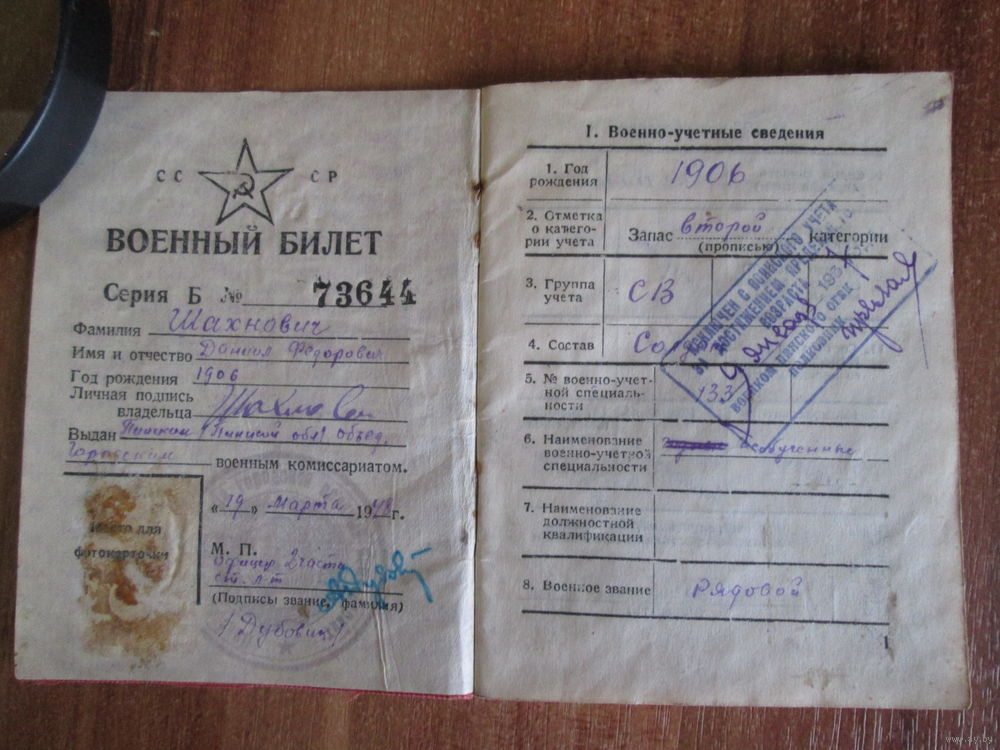 СС СР
ВОЕННЫЙ БИЛЕТ
Серия Б № 73644
Фамилия Шахнович
Имя и отчество Даниил Федорович
Год рождения 1906
Личная подпись
владельца
Выдан Пинским (Пинской обл) объед.
Городским военным комиссариатом.
«19» марта 1948 г.
Место для
фотокарточки
М. П.
Офицер 2 части
ст. л-т
(Подпись, звание, фамилия)
/Дубовик/
I. Военно-учетные сведения
1. Год
рождения 1906
2. Отметка
о катего-
рии учета
Запас второй категории
(прописью)
3. Группа
учета СВ
4. Состав
5. № военно-учет-
ной специаль-
ности 133
6. Наименование
военно-учетной
специальности необученные
7. Наименование
должностной
квалификации
8. Военное звание рядовой
ИСКЛЮЧЕН С ВОИНСКОГО УЧЕТА
ЗА ДОСТИЖЕНИЕМ ПРЕДЕЛЬНОГО
ВОЗРАСТА
9 января 195
ВОЕНКОМ ПИНСКОГО ОГВК
ПОЛКОВНИК
1
www.ay.by